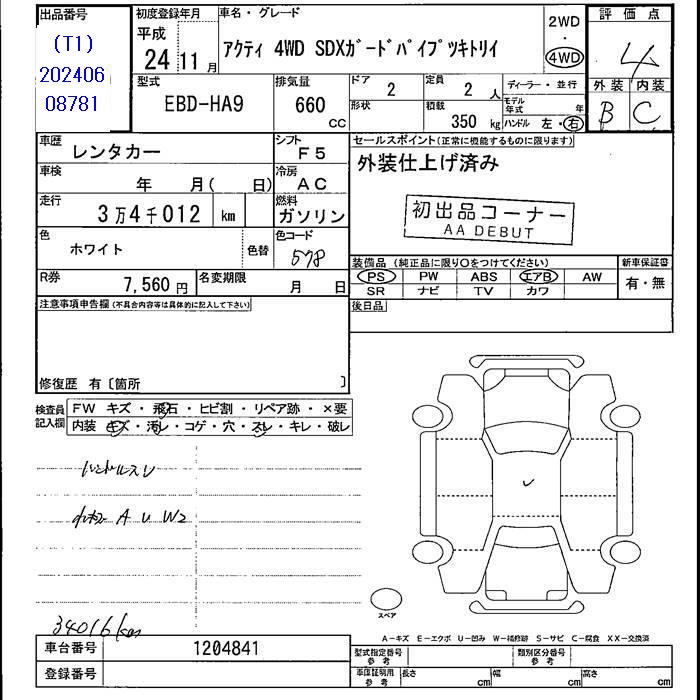 出品番号
(T1)
202406
08781
初度登録年月
平成
24 11月
車名・グレード
アクティ 4WD SDXガードパイプツキトリイ
2WD
・
4WD
評価点
4
外装 内装
B C
型式
EBD-HA9
排気量
660
CC
ドア
2
定員
2 人
ディーラー・並行
形状
積載
350 kg
モデル年式 年
ハンドル 左・右
車歴
レンタカー
シフト
F5
車検
年 月( 日)
冷房
AC
走行
3万4千012 km
燃料
ガソリン
色
ホワイト
色替
色コード
578
R券
7,560円
名変期限
月 日
セールスポイント(正常に機能するものに限ります)
外装仕上げ済み
初出品コーナー
AA DEBUT
装備品(純正品に限り○をつけてください)
PS PW ABS エアB AW
SR ナビ TV カワ
新車保証書
有・無
後日品
注意事項申告欄(不具合内容等は具体的に記入して下さい)
修復歴 有〔箇所 〕
検査員
記入欄
FW キズ・飛石・ヒビ割・リペア跡・×要
内装 キズ・汚レ・コゲ・穴・スレ・キレ・破レ
ハンドルスレ
A U W2
34016km
スペア
A-キズ E-エクボ U-凹み W-補修跡 S-サビ C-腐食 XX-交換済
車台番号
1204841
登録番号
型式指定番号
参考
類別区分番号
参考
車庫証明用
参考
長さ cm
幅 cm
高さ cm